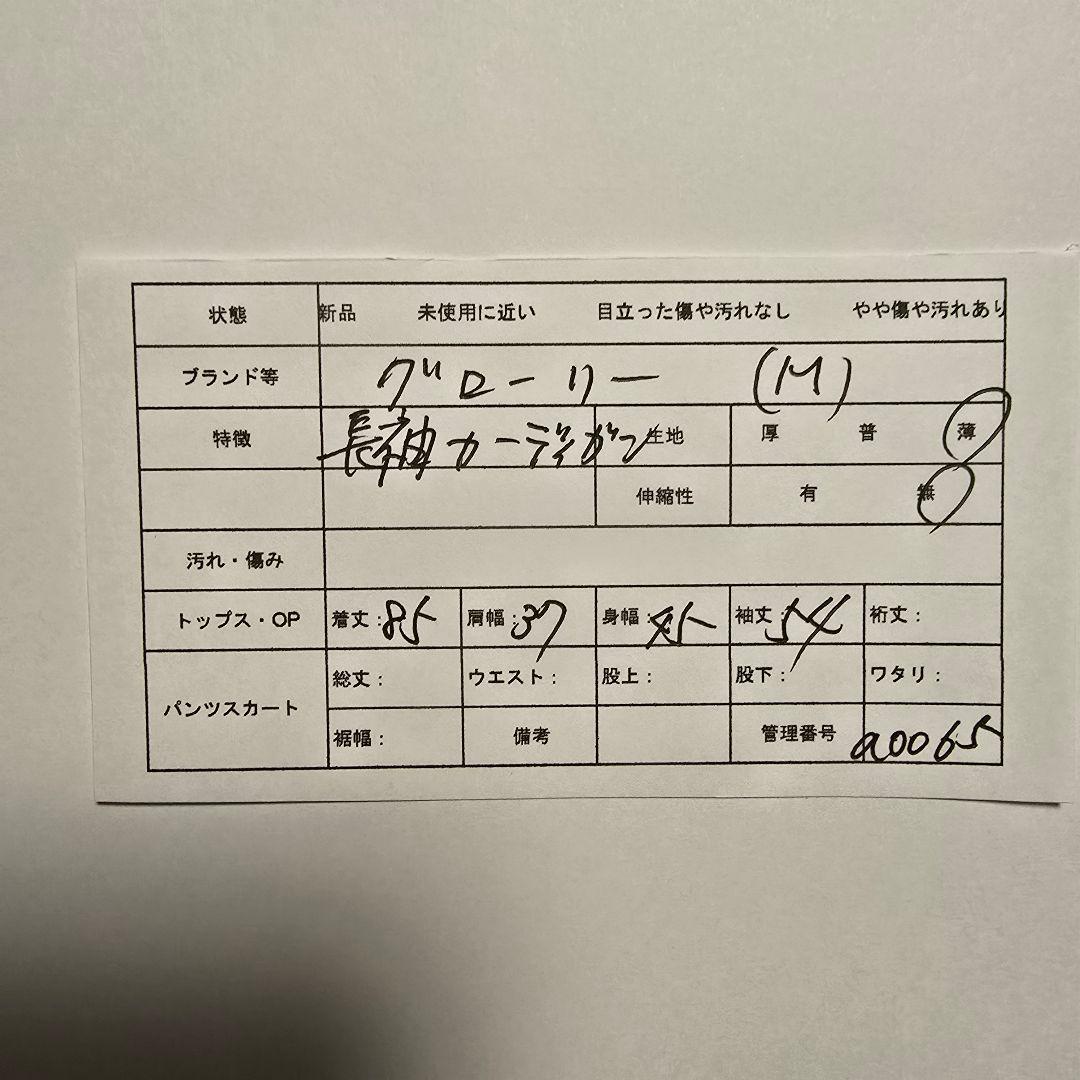 状態 新品 未使用に近い 目立った傷や汚れなし やや傷や汚れあり
ブランド等 グローリー (M)
特徴 長袖カーディガン 生地 厚 普 薄
伸縮性 有 無
汚れ・傷み
トップス・OP 着丈:85 肩幅:37 身幅:45 袖丈:54 裄丈:
パンツスカート 総丈: ウエスト: 股上: 股下: ワタリ:
裾幅: 備考 管理番号 a0065